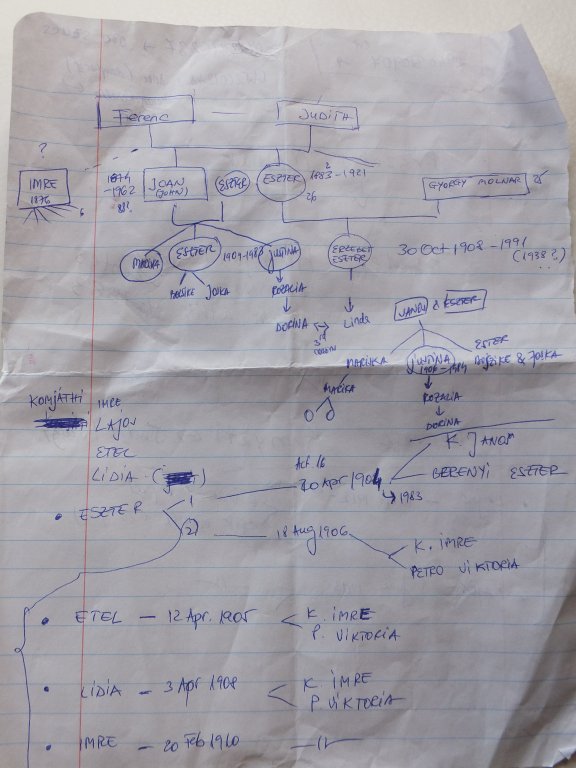 Ferenc JUDITA
?
IMRE
1876
1874
-1962
JOAN
(JOHN)
ESZTER
ESZTER
1883-1921
26
GYORGY MOLNAR 25
MARIKA
ESZTER
1904-1983
JUSTINA
ERZEBET
ESZTER
30 Oct 1908 - 1991
(1938?)
JOSKA
ROZALIA
DORINA
3rd
Linda
& ESZTER
MARIKA
JUSTINA
ESTER
& JOSKA
MARIKA
ROZALIA
DORINA
KOMJÁTHI IMRE
LAJOS
ETEL
LIDIA
K. JANOS
Act. 16
20 Apr 1904
BERENYI ESZTER
1983
• ESZTER 1
2) — 18 Aug 1906
K. IMRE
PETRO VIKTORIA
• ETEL — 12 Apr. 1905
K. IMRE
P. VIKTORIA
• LIDIA — 3 Apr 1908
K. IMRE
P VIKTORIA
• IMRE — 20 Feb 1910 — 11 —